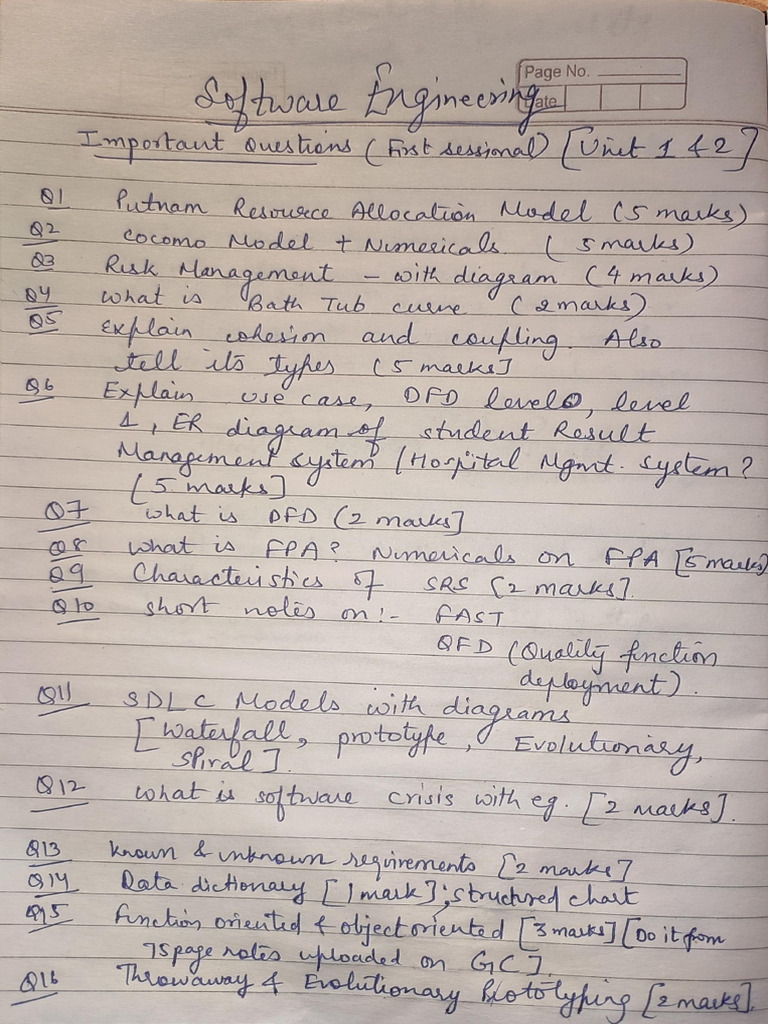 Page No.
Date
Software Engineering
Important Questions (First sessional) [Unit 1 & 2]
Q1 Putnam Resource Allocation Model (5 marks)
Q2 cocomo Model + Numericals. (5 marks)
Q3 Risk Management - with diagram (4 marks)
Q4 what is Bath Tub curve (2 marks)
Q5 Explain cohesion and coupling. Also
tell its types (5 marks]
Q6 Explain use case, DFD level 0, level
1, ER diagram of student Result
Management system / Hospital Mgmt. system?
(5 marks]
Q7 what is DFD (2 marks]
Q8 what is FPA? Numericals on FPA [5 marks)
Q9 Characteristics of SRS (2 marks].
Q10 short notes on:- FAST
QFD (Quality function
deployment).
Q11 SDLC Models with diagrams
[Waterfall, prototype, Evolutionary,
spiral].
Q12 what is software crisis with eg. [2 marks].
Q13 known & unknown requirements [2 marks]
Q14 Data dictionary [1 mark]; structured chart
Q15 function oriented & object oriented [3 marks] [Do it from
75 page notes uploaded on GC].
Q16 Throwaway & Evolutionary Prototyping [2 marks].